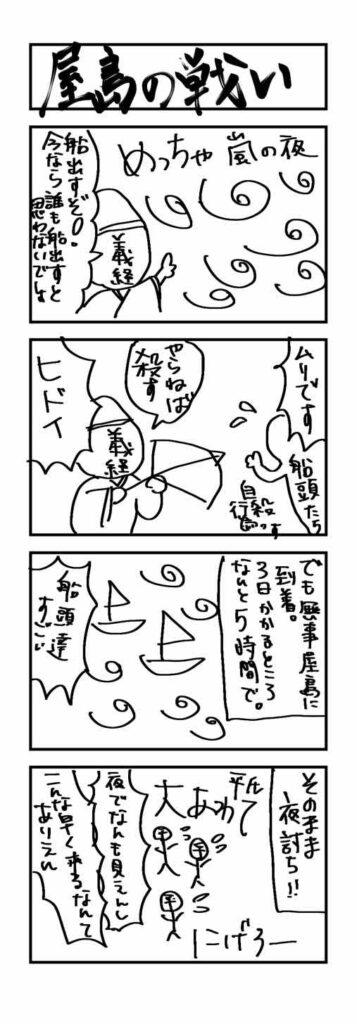 屋島の戦い
めっちゃ嵐の夜
船出すぞ〇。
今なら誰も船出すと
思わないでしょ
義経
ムリです
船頭たち
自殺
行為っす
やらねば
殺す
義経
ヒドイ
でも無事屋島に
到着。
3日かかるところ
なんと5時間で。
船頭達
すごい
そのまま
夜討ち!!
平氏
大あわて
夜でなんも見えんし
こんな早く来るなんて
ありえん
にげろー